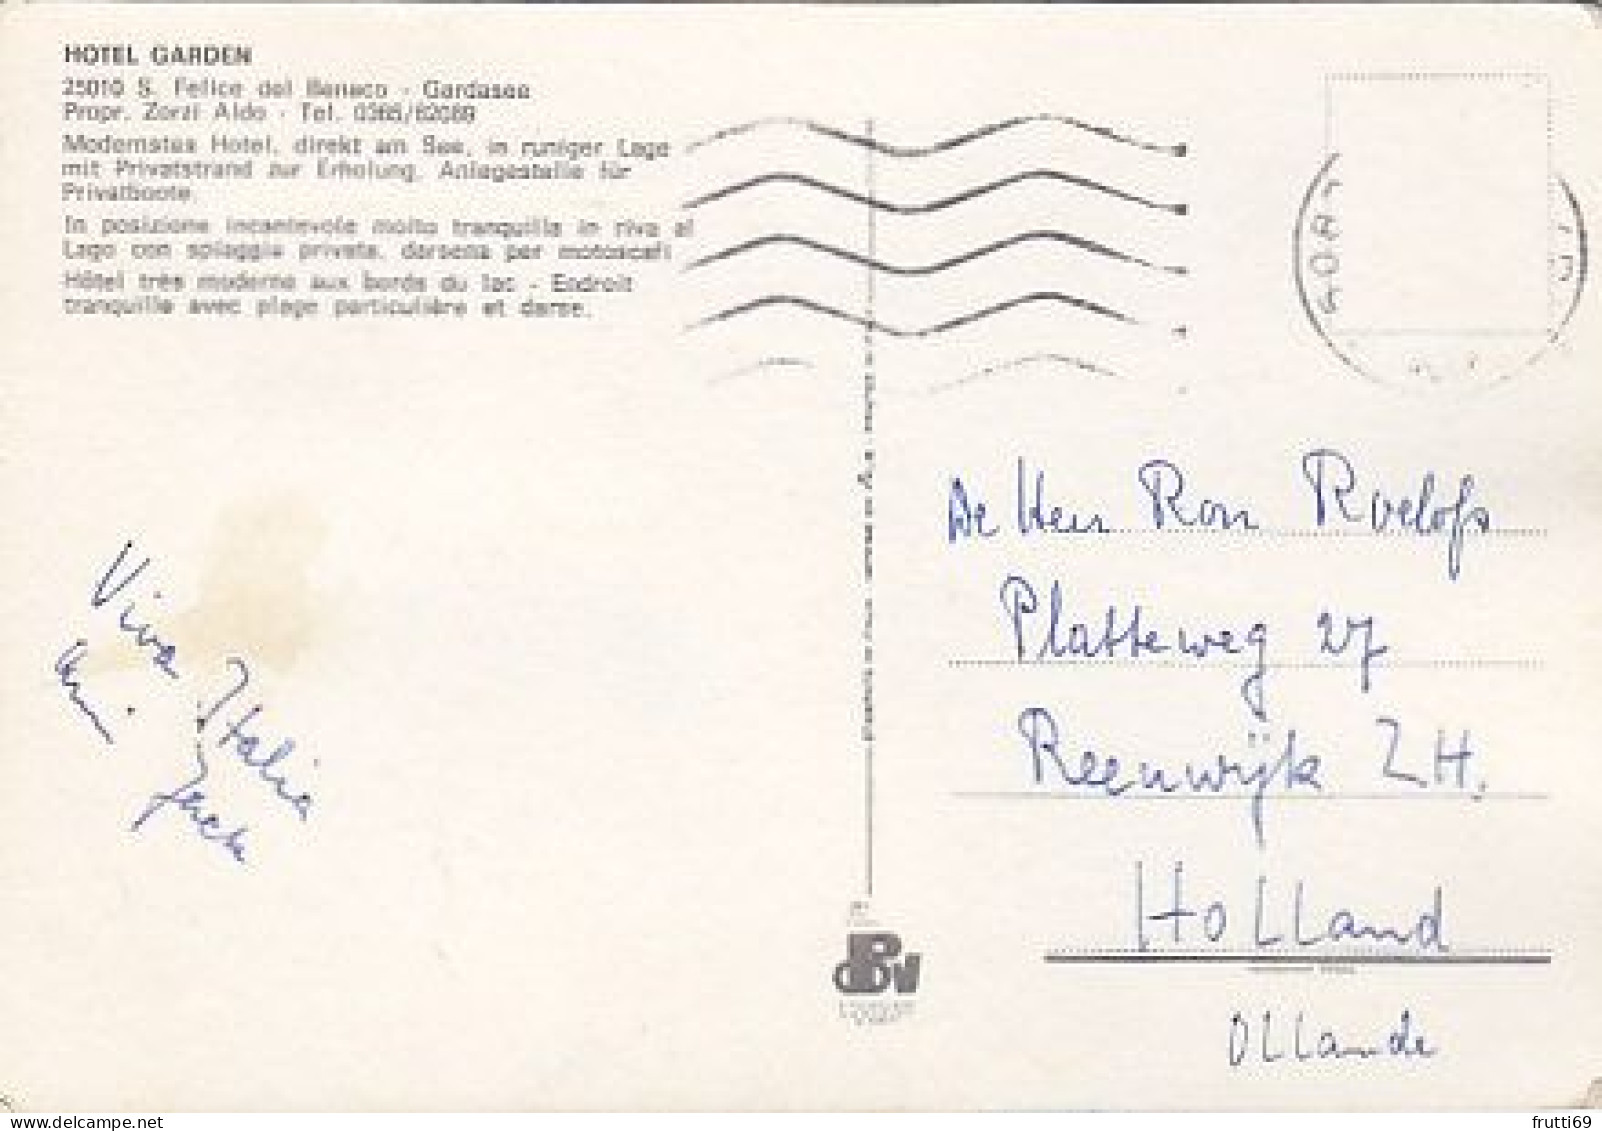 HOTEL GARDEN
25010 S. Felice del Benaco - Gardasee
Propr. Zorzi Aldo - Tel. 0365/62069
Modernstes Hotel, direkt am See, in ruhiger Lage
mit Privatstrand zur Erholung. Anlegestelle für
Privatboote.
In posizione incantevole molto tranquilla in riva al
Lago con spiaggia privata, darsena per motoscafi
Hôtel très moderne aux bords du lac - Endroit
tranquille avec plage particulière et darse.
Viva Italia
De Heer Ron Roelofs
Platteweg 27
Reeuwijk Z.H.
Holland
Ollande
delcampe.net
frutti69